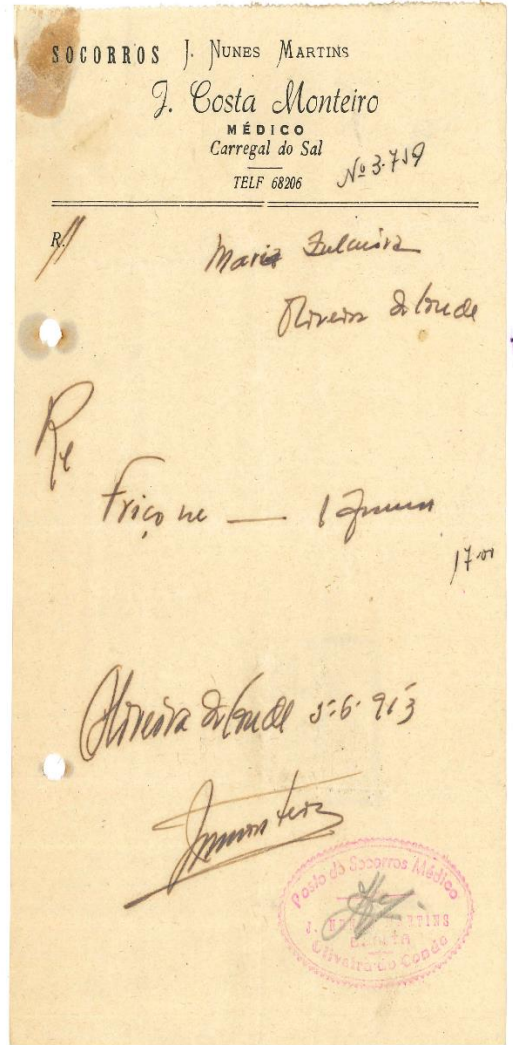 SOCORROS J. NUNES MARTINS
J. Costa Monteiro
MÉDICO
Carregal do Sal
TELF 68206
Nº 3.719
R.
Maria
Oliveira do Conde
Friçone — 1
17.00
Oliveira do Conde 5-6-963
Posto de Socorros Médico
J. NUNES MARTINS
Oliveira do Conde